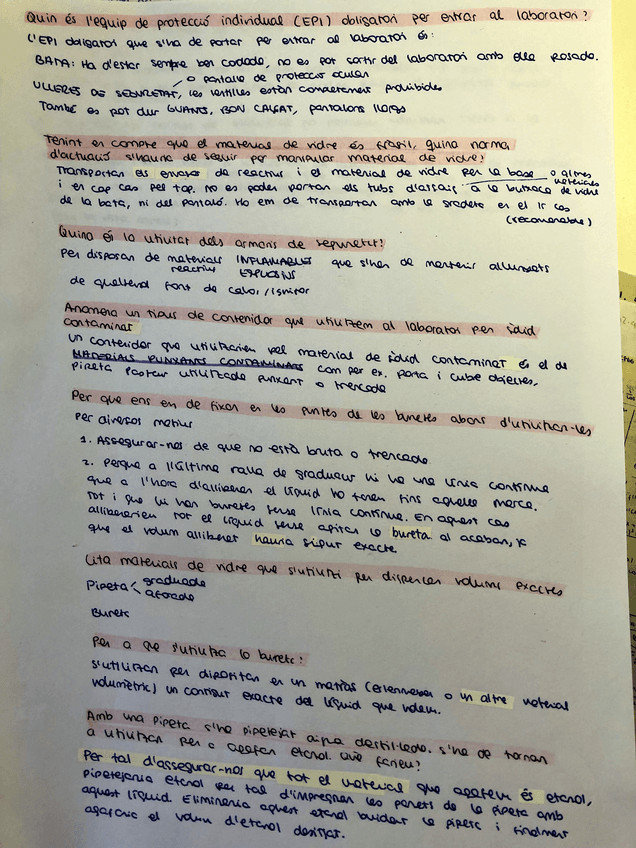 Quin és l'equip de protecció individual (EPI) obligatori per entrar al laboratori?
L'EPI obligatori que s'ha de portar per entrar al laboratori és:
BATA: Ha d'estar sempre ben cordada, no es pot sortir del laboratori amb ella posada.
o pantalla de protecció ocular
ULLERES DE SEGURETAT, les lentilles estàn completament prohibides
També es pot dur GUANTS, BON CALÇAT, pantalons llargs
Tenint en compte que el material de vidre és fràgil, quina norma
d'actuació s'hauria de seguir per manipular material de vidre?
Transportar els envasos de reactius i el material de vidre per la base o altres materials de vidre
i en cap cas pel tap. No es poden portar els tubs d'assaig a la butxaca
de la bata, ni del pantaló. Ho em de transportar amb la gradeta en el
(recomanable)
Quina és la utilitat dels armaris de seguretat?
Per disposar de materials INFLAMABLES que s'han de mantenir allunyats
reactius EXPLOSIUS
de qualsevol font de calor/ignició
Anomena un tipus de contenidor que utilitzem al laboratori per sòlid
contaminat
Un contenidor que utilitzariem pel material de sòlid contaminat és el de
MATERIALS PUNXANTS CONTAMINATS com per ex. porta i cobre objectes,
pipeta Pasteur utilitzada punxant o trencada
Per que ens em de fixar en les puntes de les buretes abans d'utilitzar-les
Per diversos motius
1. Assegurar-nos de que no està bruta o trencada
2. Perque a l'última ralla de graduació hi ha una línia contínua
que a l'hora d'alliberar el líquid ho farem fins aquella marca.
Tot i que hi han buretes sense línia contínua. En aquest cas
alliberariem tot el líquid sense agitar la bureta al acabar, ja
que el volum alliberat hauria sigut exacte
Cita materials de vidre que s'utilitzi per dispensar volums exactes
Pipeta graduada
aforada
Bureta
Per a que s'utilitza la bureta?
S'utilitzen per dipositar en un matràs (erlenmeyer o un altre material
volumètric) un contingut exacte del líquid que volem.
Amb una pipeta s'ha pipetejat aigua destil·lada. S'ha de tornar
a utilitzar per a agafar etanol. Què faríeu?
Per tal d'assegurar-nos que tot el material que agafem és etanol,
pipetejaria etanol per tal d'impregnar les parets de la pipeta amb
aquest líquid. Eliminaria aquest etanol buidant la pipeta i finalment
agafaria el volum d'etanol desitjat.